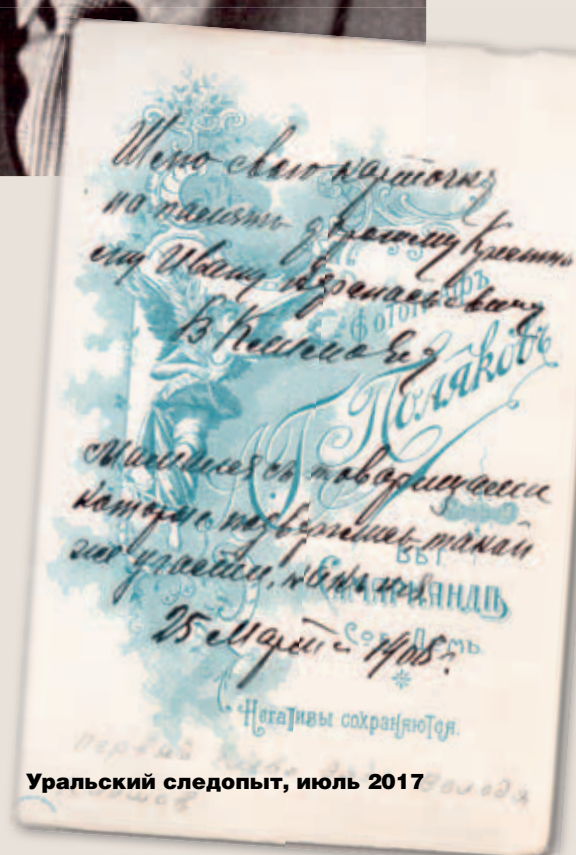 Шлю свою карточку
на память дорогому Крестно
му Ивану
В Климовъ
Фотографъ
Г. Поляковъ
Снимался съ товарищами
которые подверглись такой
же участи, какъ и я
Въ г.
25 Марта 1908 г.
Негативы сохраняются.
Первый
Володя
Уральский следопыт, июль 2017